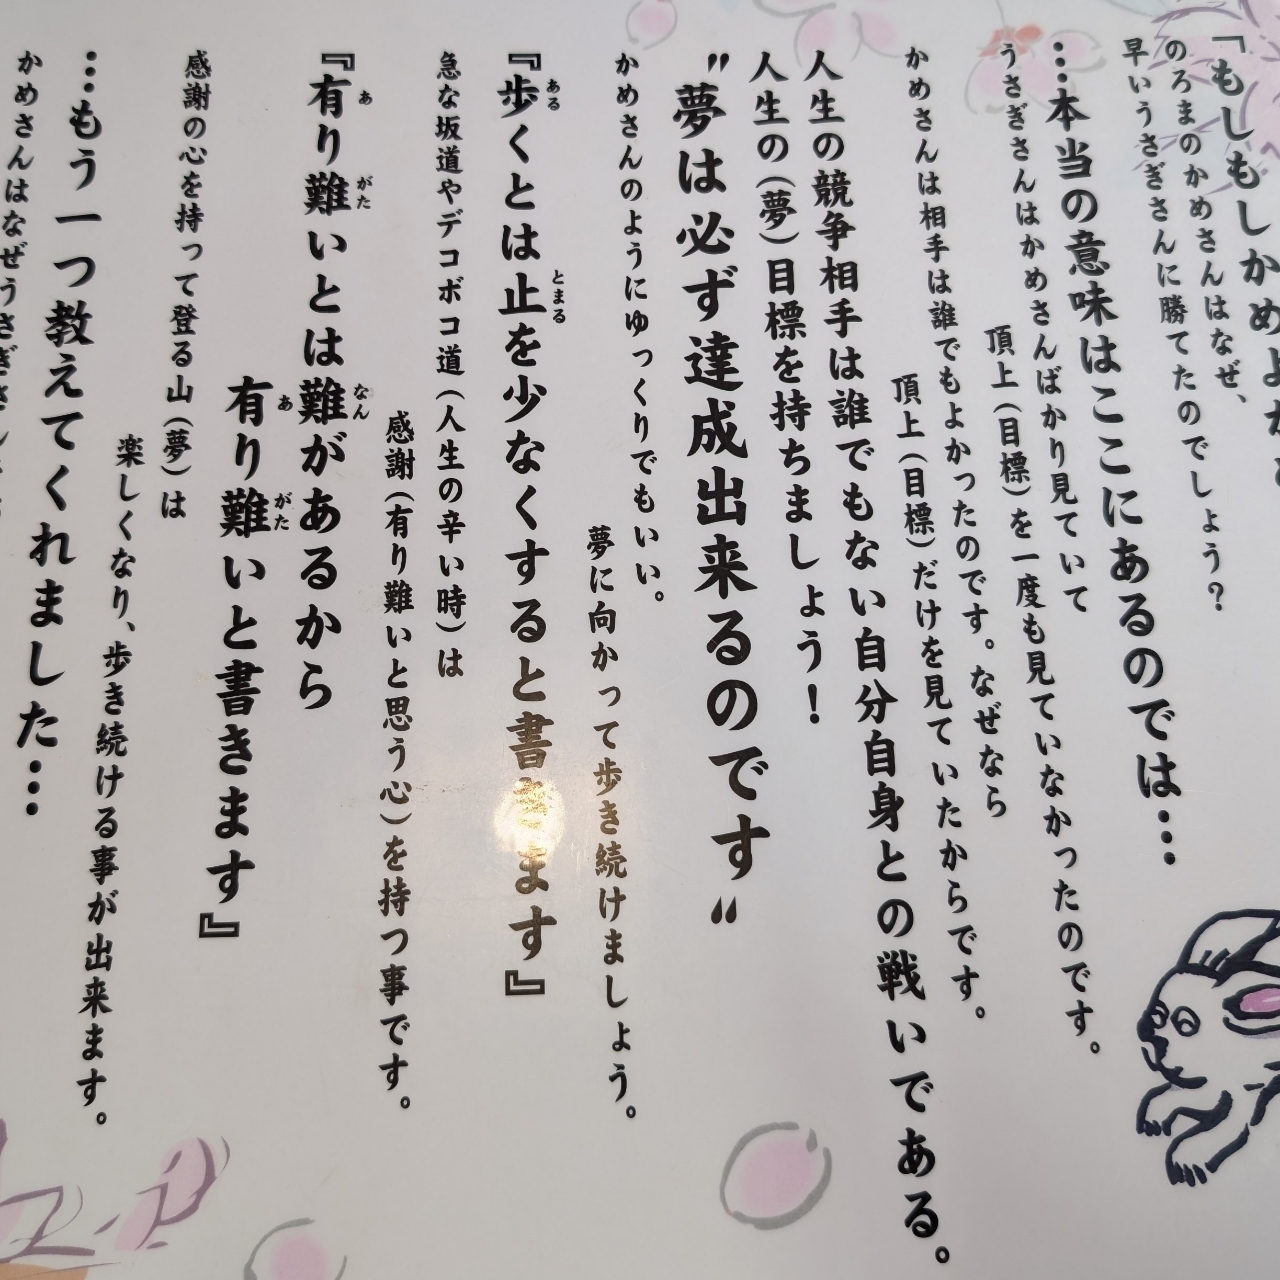 「もしもしかめよかめ
のろまのかめさんはなぜ、
早いうさぎさんに勝てたのでしょう？
…本当の意味はここにあるのでは…
うさぎさんはかめさんばかり見ていて
頂上（目標）を一度も見ていなかったのです。
かめさんは相手は誰でもよかったのです。なぜなら
頂上（目標）だけを見ていたからです。
人生の競争相手は誰でもない自分自身との戦いである。
人生の（夢）目標を持ちましょう！
〝夢は必ず達成出来るのです〟
かめさんのようにゆっくりでもいい。
夢に向かって歩き続けましょう。
『歩くとは止を少なくすると書きます』
急な坂道やデコボコ道（人生の辛い時）は
感謝（有り難いと思う心）を持つ事です。
『有り難いとは難があるから
有り難いと書きます』
感謝の心を持って登る山（夢）は
楽しくなり、歩き続ける事が出来ます。
…もう一つ教えてくれました…
かめさんはなぜうさぎさん